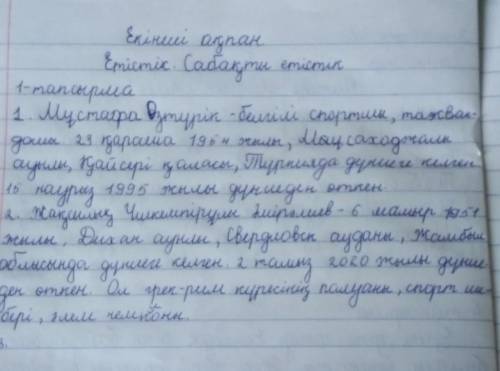 Екінші ақпан
Етістік. Сабақты етістік
1-тапсырма
1. Мұстафа Өзтүрік - белгілі спортшы, таэквон-
дошы 23 қараша 1954 жылы,
ауылы, Қайсері қаласы, Түркияда дүниеге келген
15 наурыз 1995 жылы дүниеден өткен.
2. Жақсылық - 6 мамыр 1951
жылы, Дихан ауылы, Свердловск ауданы, Жамбыл
облысында дүниеге келген. 2 тамыз 2020 жылы дүние-
ден өткен. Ол грек-рим күресінің палуаны, спорт ше-
бері, әлем чемпионы.
3.